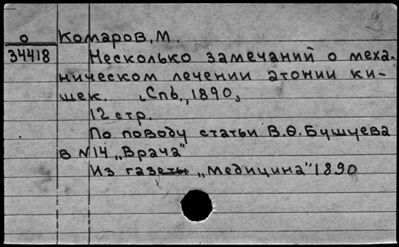 о Комаров, М.
34418 Несколько замечаний о меха-
ническом лечении атонии ки-
шек. Спб., 1890,
12 стр.
По поводу статьи В.Ѳ. Бушуева
в №14 „Врача"
Из газеты „Медицина" 1890